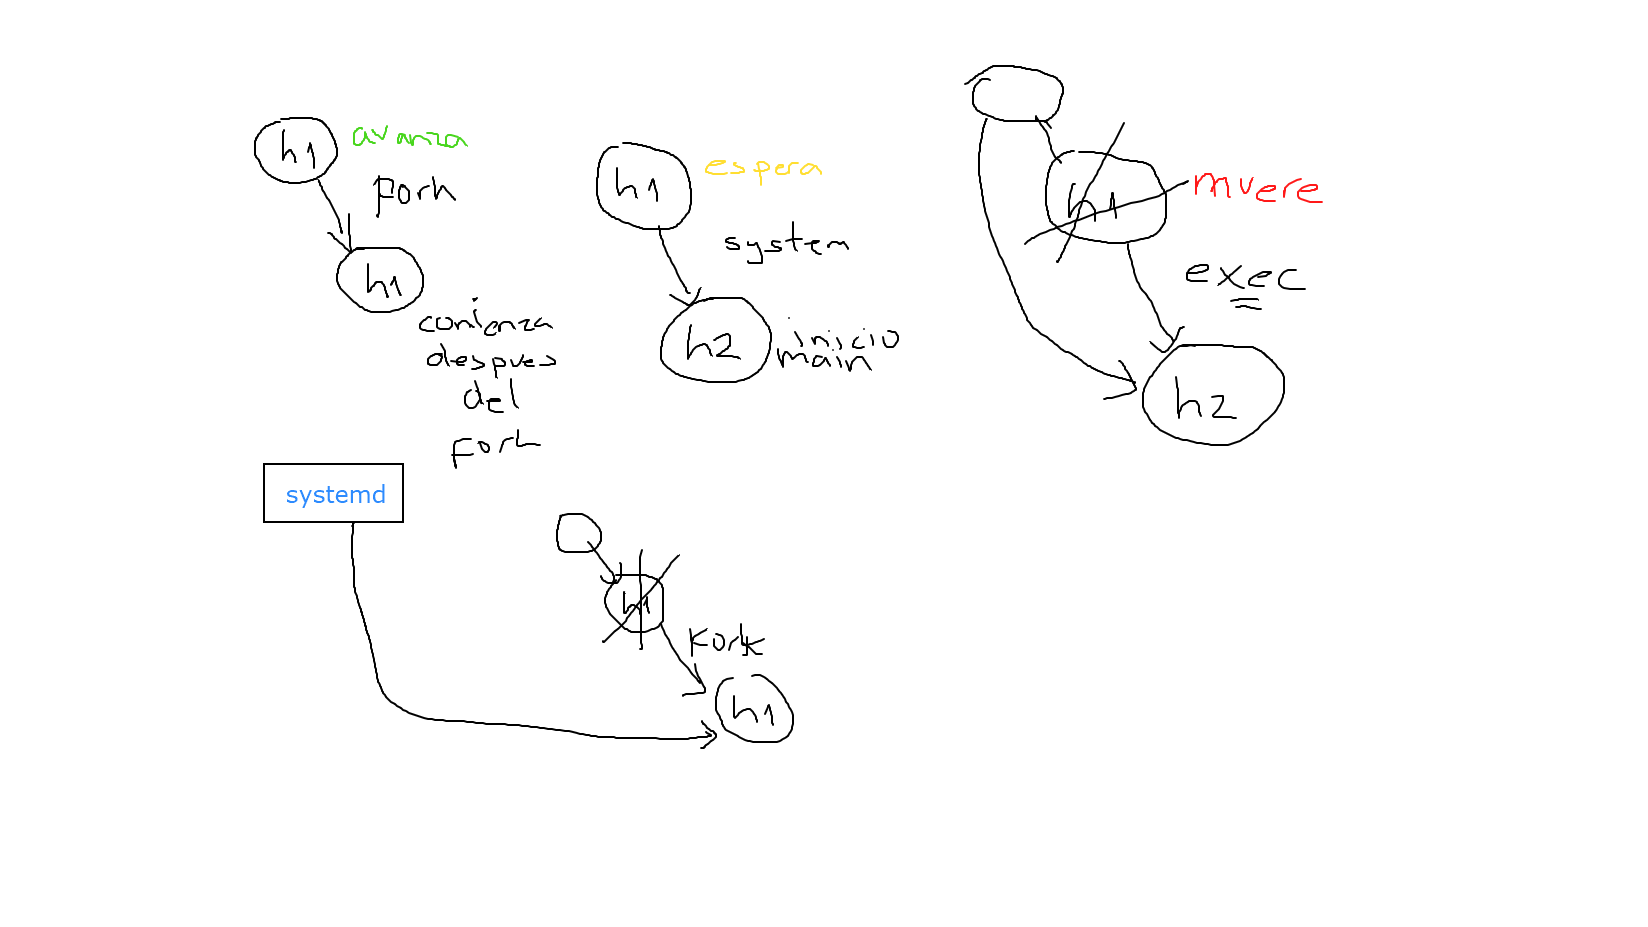 h1 avanza
fork
h1
comienza
despues
del
fork
h1 espera
system
h2 inicio
main
h1 muere
exec
h2
systemd
h1
Kork
h1